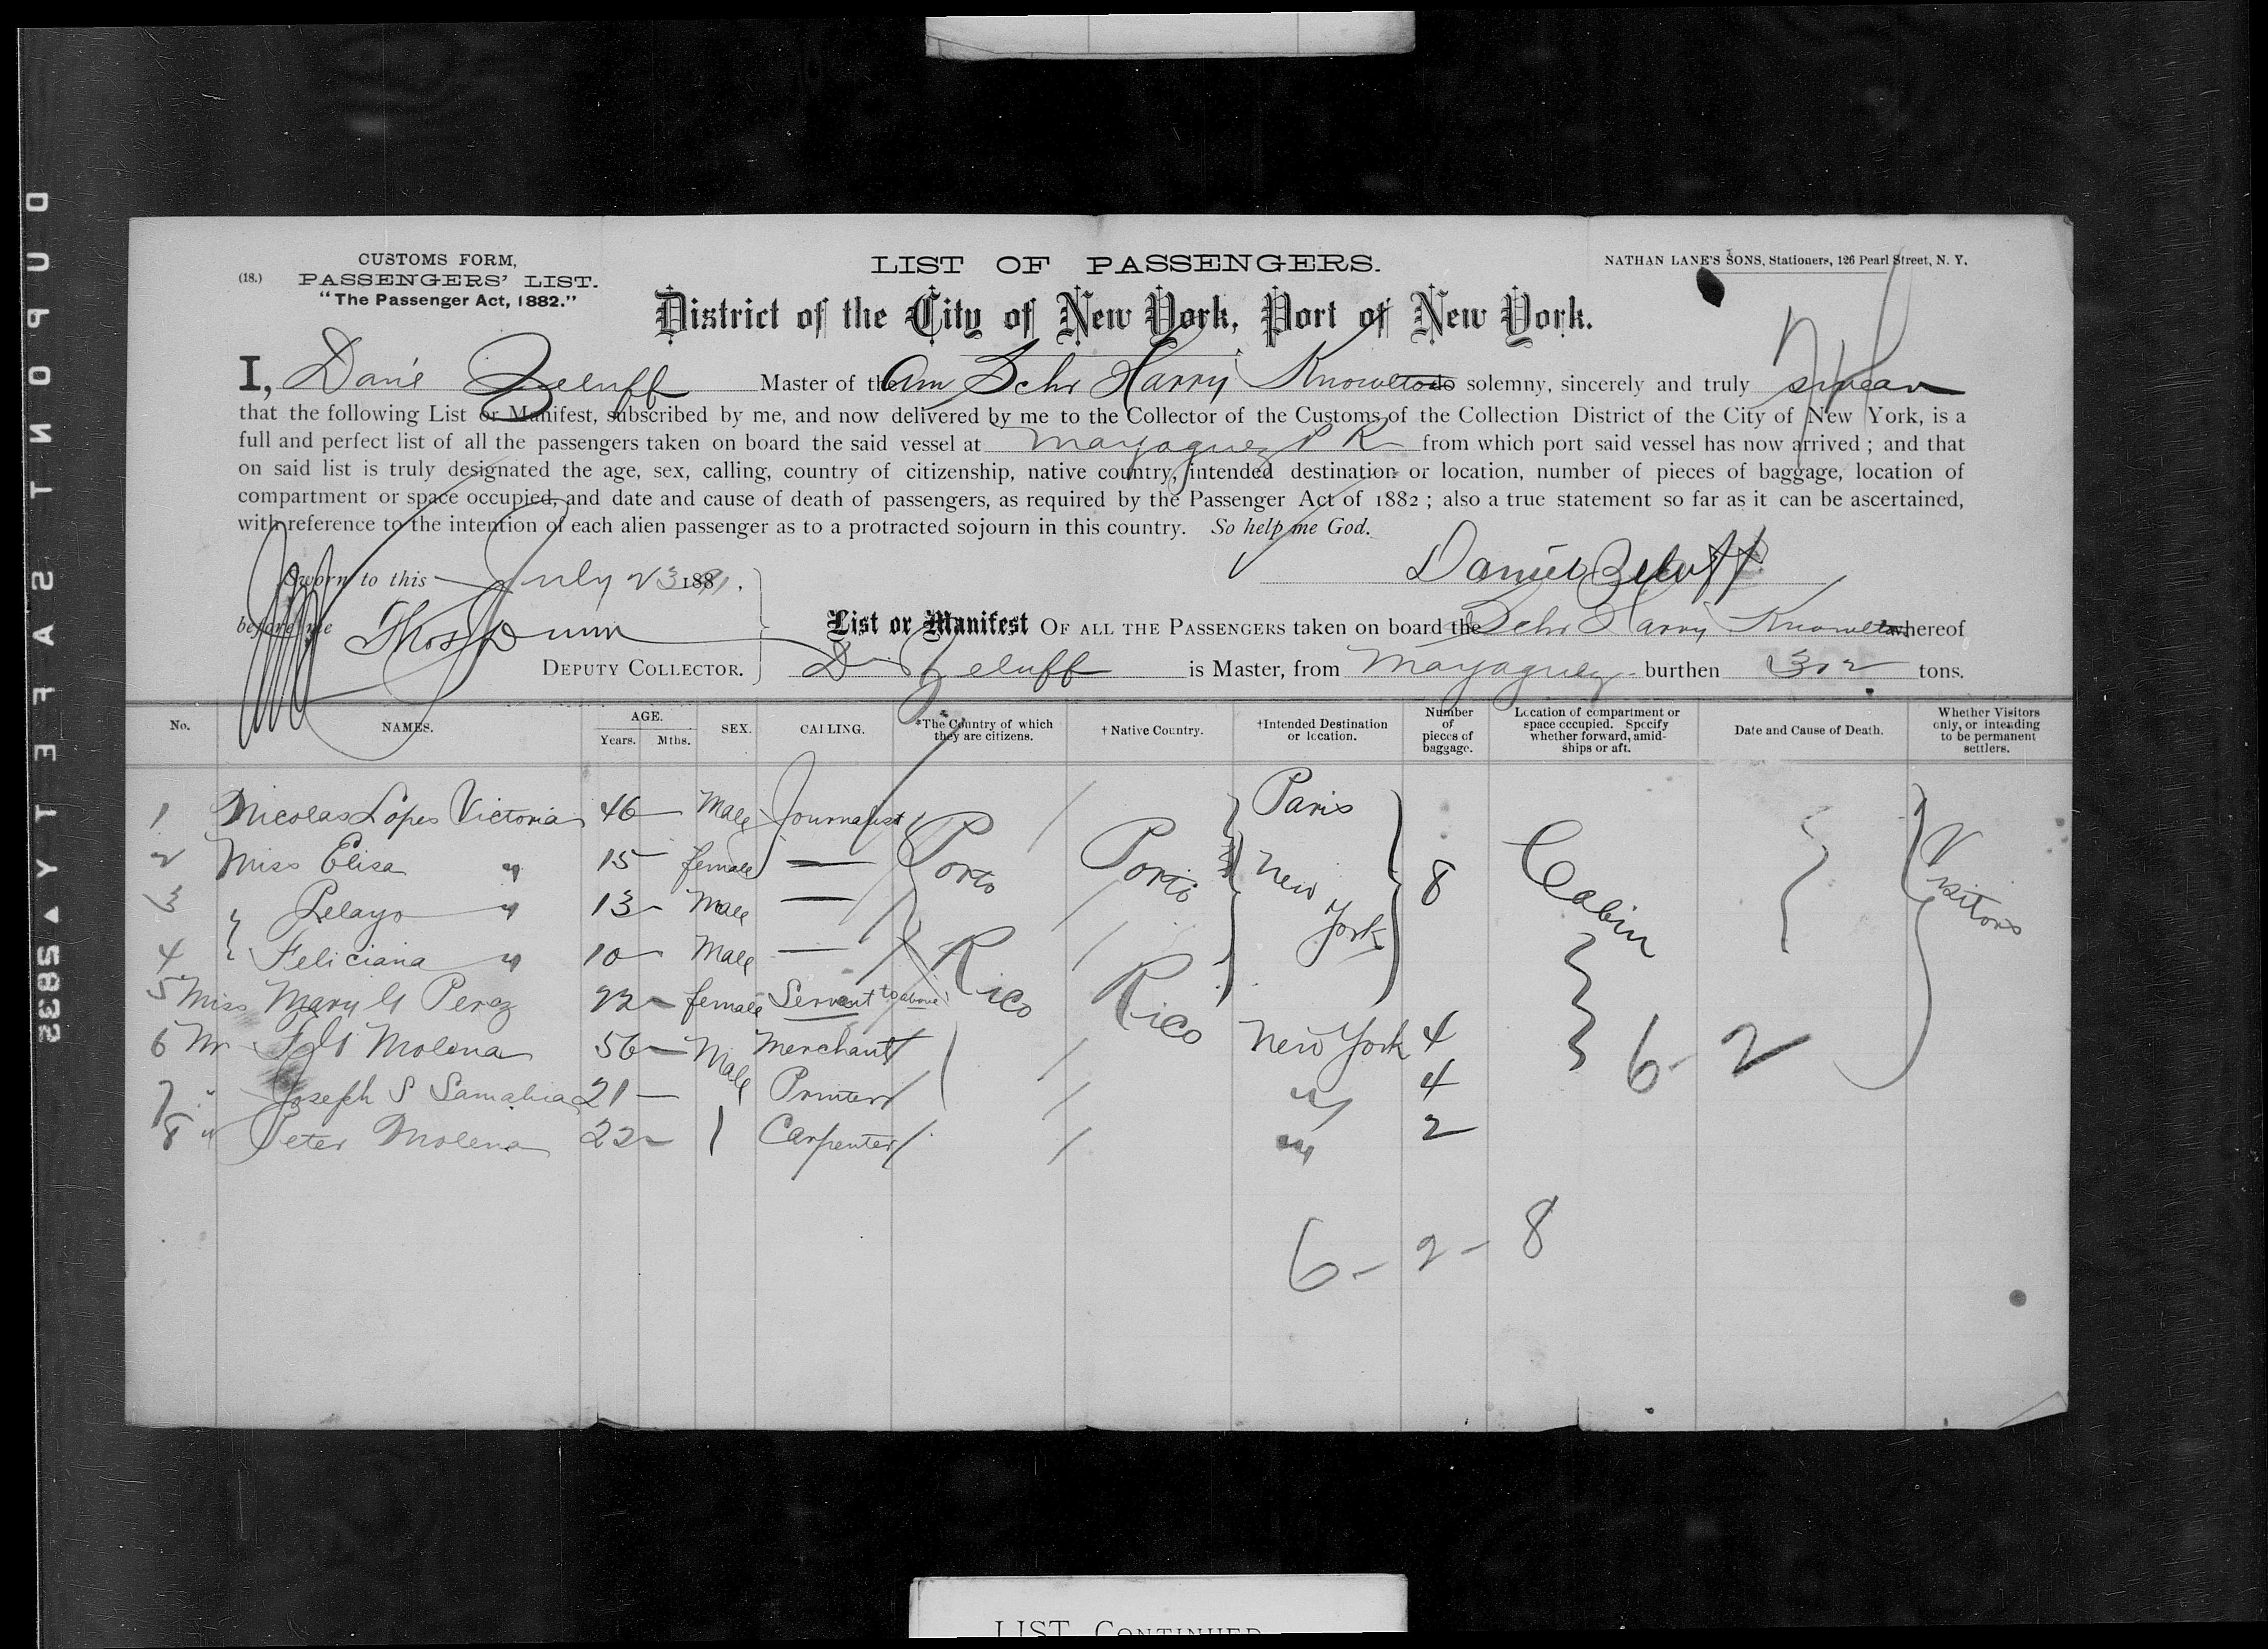 CUSTOMS FORM,
(18.) PASSENGERS' LIST.
"The Passenger Act, 1882."
LIST OF PASSENGERS.
NATHAN LANE'S SONS, Stationers, 126 Pearl Street, N. Y.
District of the City of New York, Port of New York.
I, Dan'l Zeluff Master of the Am Schr Harry Knowlton do solemny, sincerely and truly swear
that the following List or Manifest, subscribed by me, and now delivered by me to the Collector of the Customs of the Collection District of the City of New York, is a
full and perfect list of all the passengers taken on board the said vessel at Mayaguez P R from which port said vessel has now arrived ; and that
on said list is truly designated the age, sex, calling, country of citizenship, native country, intended destination or location, number of pieces of baggage, location of
compartment or space occupied, and date and cause of death of passengers, as required by the Passenger Act of 1882 ; also a true statement so far as it can be ascertained,
with reference to the intention of each alien passenger as to a protracted sojourn in this country. So help me God.
Daniel Zeluff
Sworn to this July 23 1891.
before me Thos Dunn
DEPUTY COLLECTOR.
List or Manifest OF ALL THE PASSENGERS taken on board the Schr Harry Knowlton whereof
D Zeluff is Master, from Mayaguez burthen 312 tons.
No. NAMES. AGE. Years. Mths. SEX. CALLING. *The Country of which they are citizens. † Native Country. †Intended Destination or location. Number of pieces of baggage. Location of compartment or space occupied. Specify whether forward, amidships or aft. Date and Cause of Death. Whether Visitors only, or intending to be permanent settlers.
1 Nicolas Lopes Victoria 46 Male Journalist Porto Rico Porto Rico Paris New York 8 Cabin Visitors
2 Miss Elisa " 15 female —
3 Pelayo " 13 Male —
4 Feliciana " 10 Male —
5 Miss Mary G Perez 22 female Servant to above
6 Mr Molena 56 Male Merchant New York 4 6 - 2
7 " Joseph S Samahia 21 Printer " 4
8 " Peter Molena 22 Carpenter " 2
6 - 2 - 8
LIST CONTINUED
DUPONT SAFETY ▲ 5832